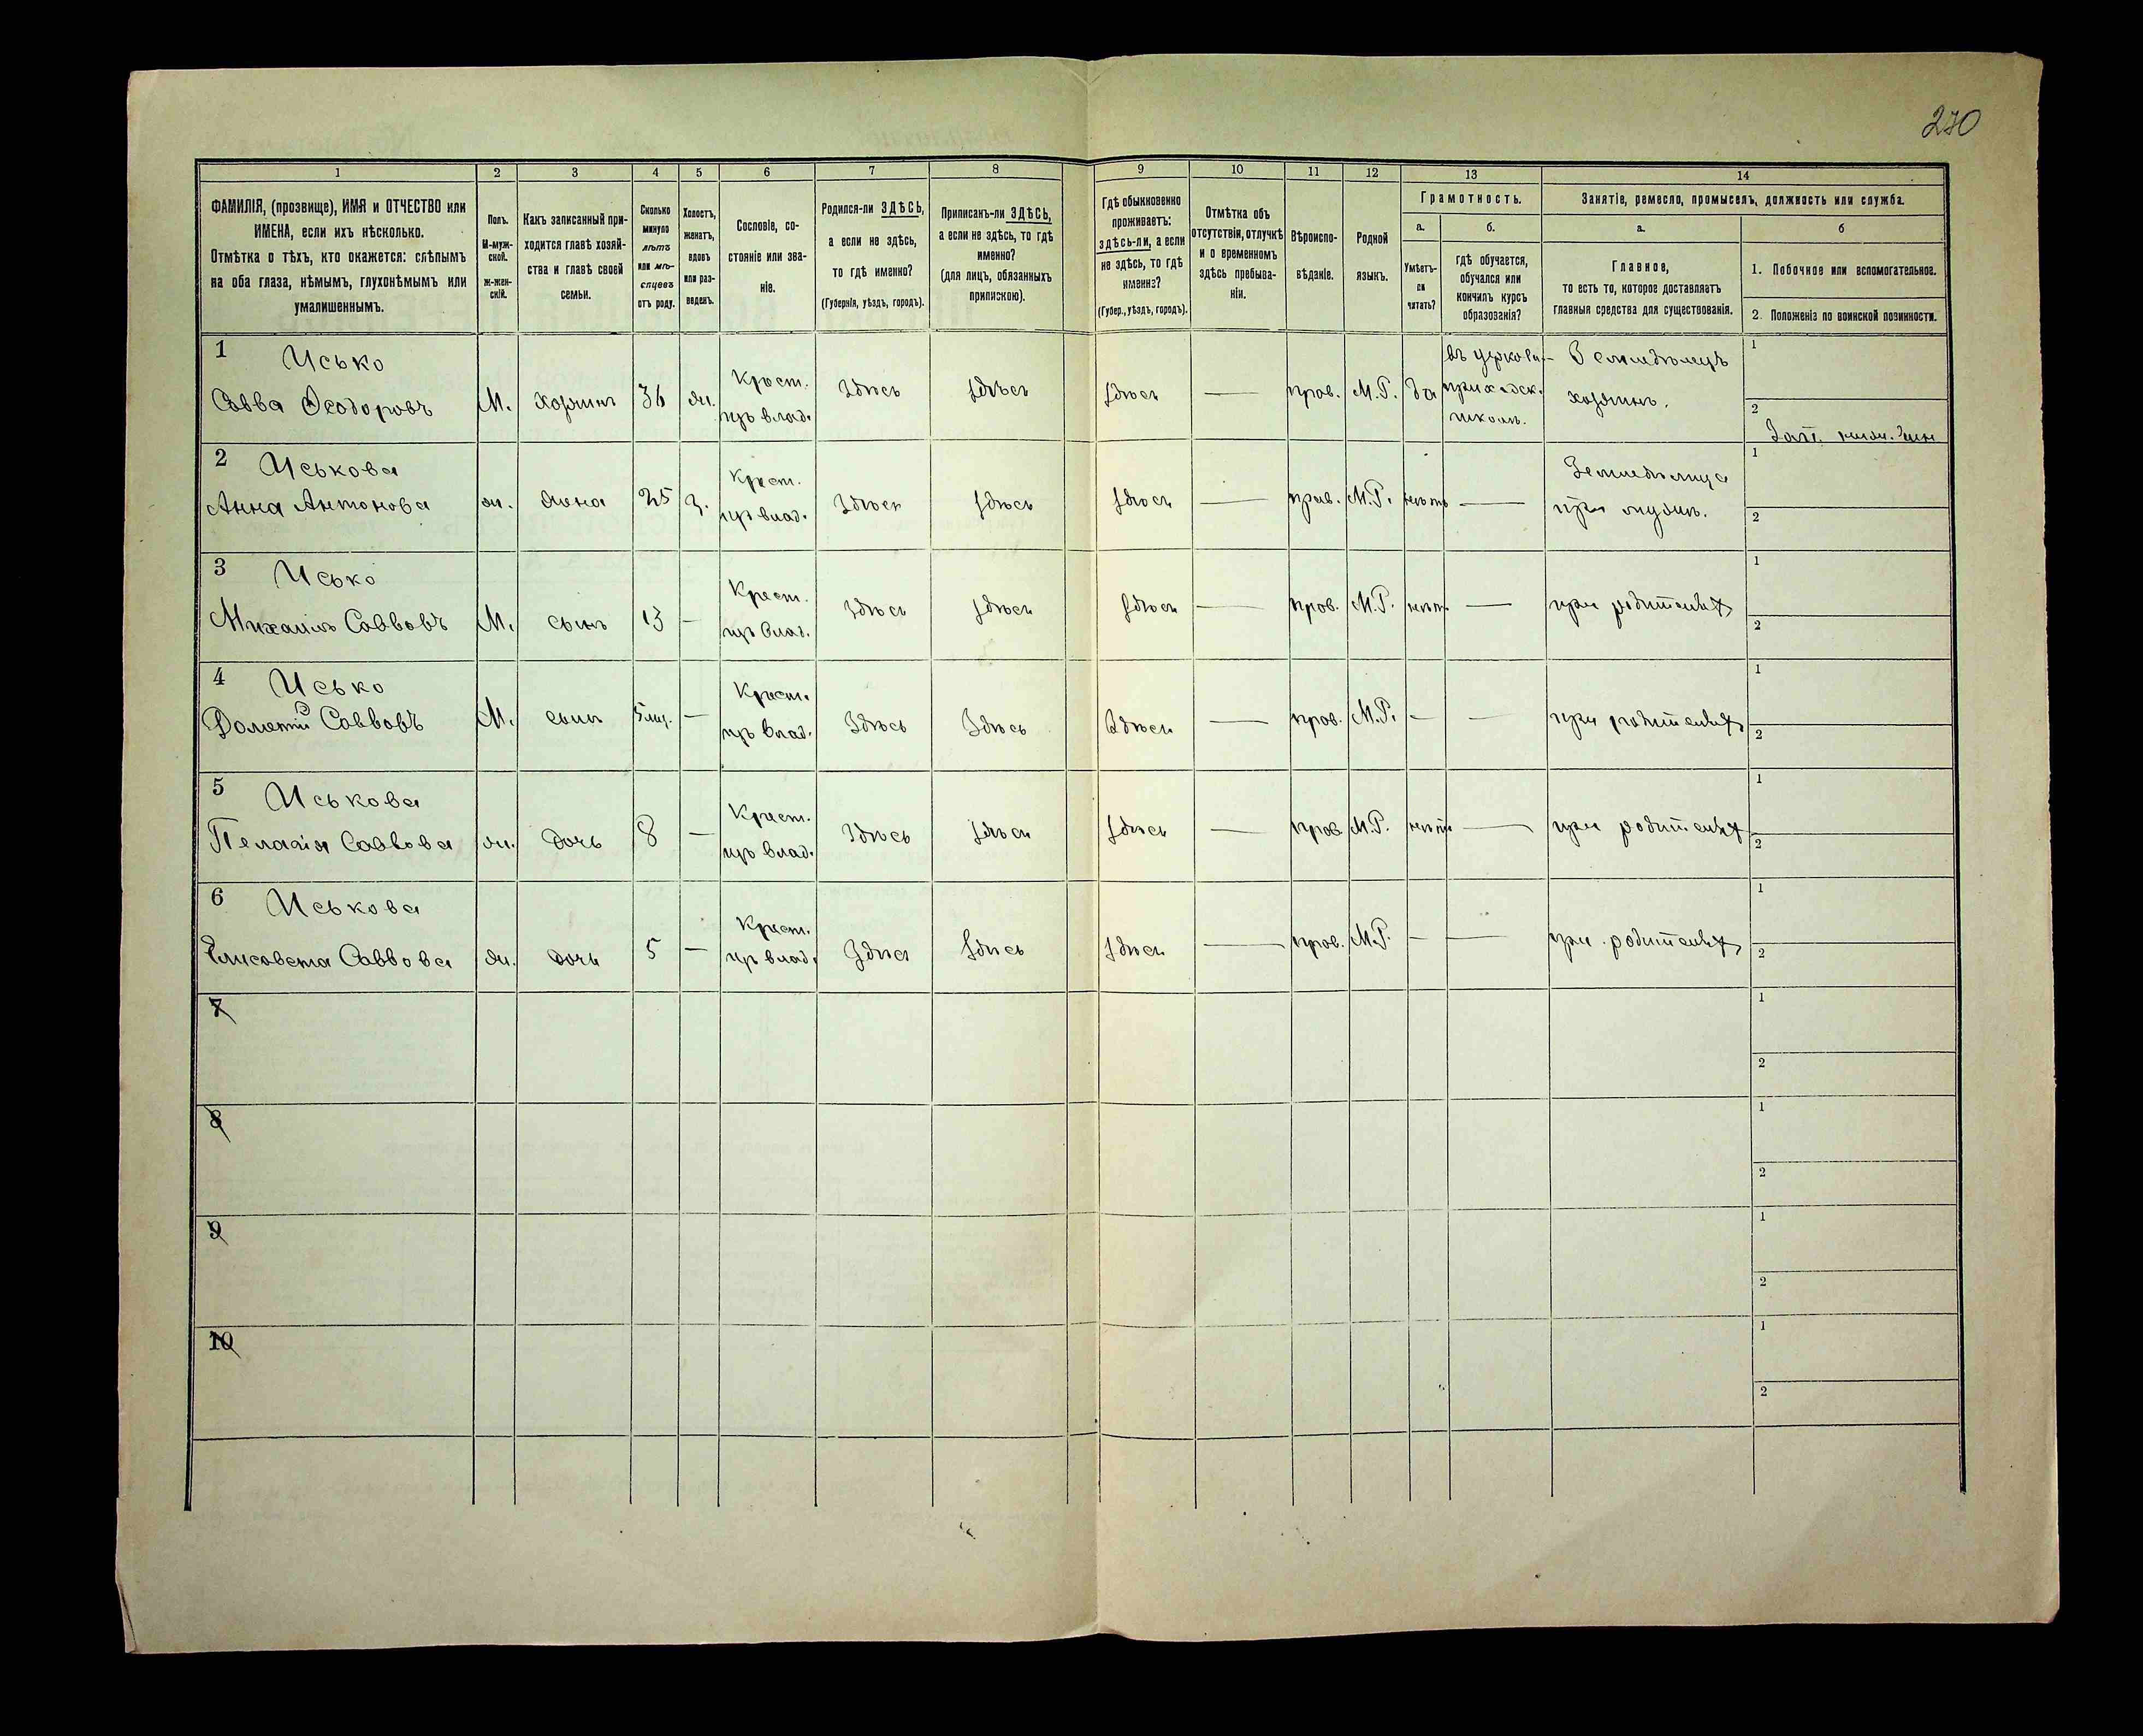 270
1 2 3 4 5 6 7 8 9 10 11 12 13 14
ФАМИЛІЯ, (прозвище), ИМЯ и ОТЧЕСТВО или
ИМЕНА, если ихъ нѣсколько.
Отмѣтка о тѣхъ, кто окажется: слѣпымъ
на оба глаза, нѣмымъ, глухонѣмымъ или
умалишеннымъ.
Полъ.
М-муж-
ской.
ж-жен-
скій.
Какъ записанный при-
ходится главѣ хозяй-
ства и главѣ своей
семьи.
Сколько
минуло
лѣтъ
или мѣ-
сяцевъ
отъ роду.
Холостъ,
женатъ,
вдовъ
или раз-
веденъ.
Сословіе, со-
стояніе или зва-
ніе.
Родился-ли ЗДѢСЬ,
а если не здѣсь,
то гдѣ именно?
(Губернія, уѣздъ, городъ).
Приписанъ-ли ЗДѢСЬ,
а если не здѣсь, то гдѣ
именно?
(для лицъ, обязанныхъ
припискою).
Гдѣ обыкновенно
проживаетъ:
здѣсь-ли, а если
не здѣсь, то гдѣ
именно?
(Губер., уѣздъ, городъ).
Отмѣтка объ
отсутствіи, отлучкѣ
и о временномъ
здѣсь пребыва-
ніи.
Вѣроиспо-
вѣданіе.
Родной
языкъ.
Грамотность.
а.
Умѣетъ-
ли
читать?
б.
гдѣ обучается,
обучался или
кончилъ курсъ
образованія?
Занятіе, ремесло, промыселъ, должность или служба.
а.
Главное,
то есть то, которое доставляетъ
главныя средства для существованія.
б
1. Побочное или вспомогательное.
2. Положеніе по воинской повинности.
1 Исько
Савва Ѳеодоровъ М. хозяинъ 36 жн. Крест. изъ влад. Здѣсь Здѣсь Здѣсь — прав. М.Р. да
въ церковн-
приходск.
школѣ.
Земледѣлецъ
хозяинъ.
1
2
2 Иськова
Анна Антонова ж. жена 25 з. Крест. изъ влад. Здѣсь Здѣсь Здѣсь — прав. М.Р. нѣтъ —
Земледѣлица
при мужѣ.
1
2
3 Исько
Михаилъ Саввовъ М. сынъ 13 — Крест. изъ влад. Здѣсь Здѣсь Здѣсь — прав. М.Р. нѣтъ — при родителяхъ
1
2
4 Исько
Дометій Саввовъ М. сынъ 5 мц. — Крест. изъ влад. Здѣсь Здѣсь Здѣсь — прав. М.Р. — — при родителяхъ
1
2
5 Иськова
Пелагія Саввова ж. дочь 8 — Крест. изъ влад. Здѣсь Здѣсь Здѣсь — прав. М.Р. нѣтъ — при родителяхъ
1
2
6 Иськова
Елисовета Саввова ж. дочь 5 — Крест. изъ влад. Здѣсь Здѣсь Здѣсь — прав. М.Р. — — при родителяхъ
1
2
7
1
2
8
1
2
9
1
2
10
1
2